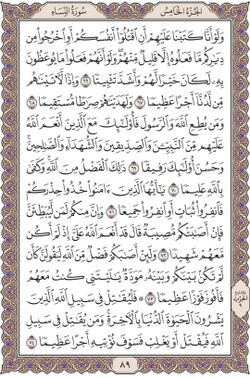 الجزء الخامس
سورة النساء
ولو أنا كتبنا عليهم أن اقتلوا أنفسكم أو اخرجوا من
ديركم ما فعلوه إلا قليل منهم ولو أنهم فعلوا ما يوعظون
به لكان خيرا لهم وأشد تثبيتا ٦٦ وإذا لآتينهم
من لدنا أجرا عظيما ٦٧ ولهدينهم صرطا مستقيما ٦٨
ومن يطع الله والرسول فأولئك مع الذين أنعم الله
عليهم من النبين والصديقين والشهداء والصلحين
وحسن أولئك رفيقا ٦٩ ذلك الفضل من الله وكفى
بالله عليما ٧٠ يأيها الذين ءامنوا خذوا حذركم
فانفروا ثبات أو انفروا جميعا ٧١ وإن منكم لمن ليبطئن
فإن أصبتكم مصيبة قال قد أنعم الله علي إذ لم أكن
معهم شهيدا ٧٢ ولئن أصبكم فضل من الله ليقولن كأن
لم تكن بينكم وبينه مودة يليتني كنت معهم
فأفوز فوزا عظيما ٧٣ فليقتل في سبيل الله الذين
يشرون الحيوة الدنيا بالآخرة ومن يقتل في سبيل
الله فيقتل أو يغلب فسوف نؤتيه أجرا عظيما ٧٤
٨٩